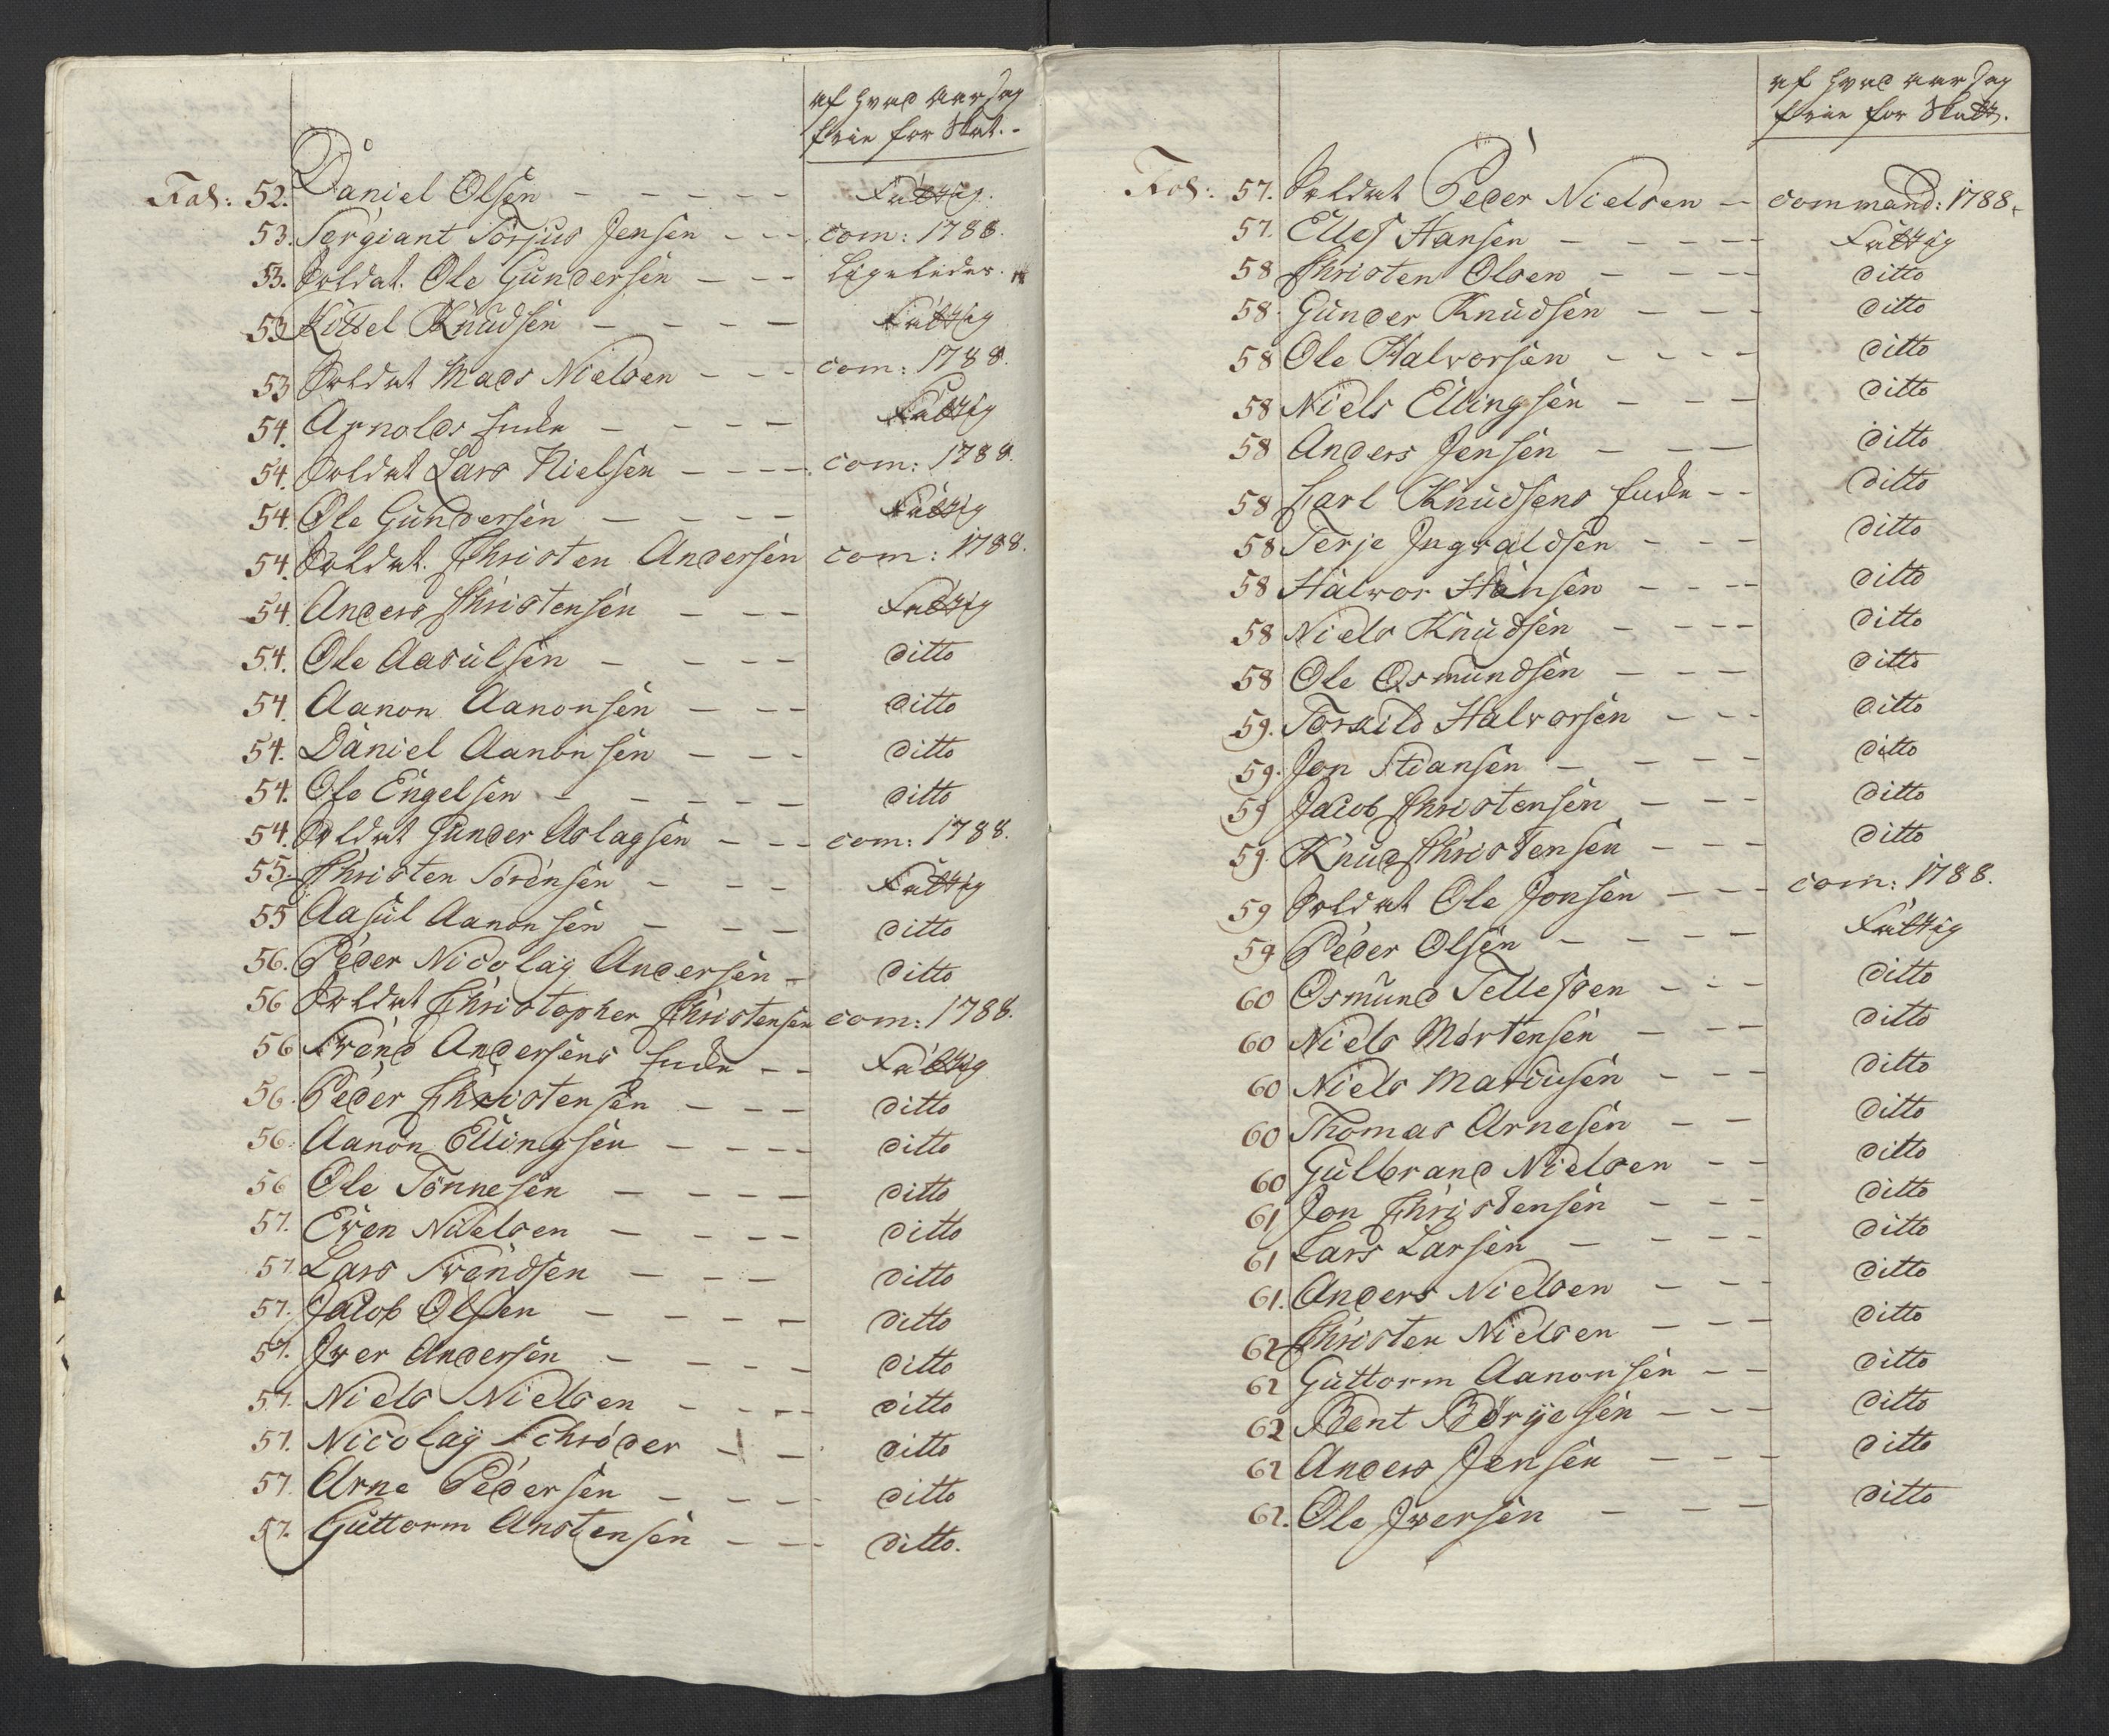 af hvad Aarsag
frie for Skat.
Fol: 52. Daniel Olsen — — — — — Fattig.
53. Sergiant Torjus Jensen — — — com: 1788.
53. Soldat. Ole Gundersen — — — Ligeledes.
53 Kittel Knudsen — — — — Fattig
53 Soldat Mads Nielsen — — — com: 1788.
54. Arnolds Enke — — — — Fattig
54. Soldat Lars Nielsen — — — — com: 1788.
54. Ole Gundersen — — — — Fattig
54. Soldat. Christen Andersen com: 1788.
54. Anders Christensen — — — Fattig
54. Ole Aasulsen — — — — ditto
54. Aanon Aanonsen — — — ditto
54. Daniel Aanonsen — — — ditto
54. Ole Engelsen — — — — — ditto
54. Soldat Gunder Aslagsen — — — com: 1788.
55. Christen Sørensen — — — Fattig
55 Aasul Aanonsen — — — ditto
56. Peder Nicolay Andersen — ditto
56 Soldat Christopher Christensen com: 1788.
56 Svend Andersens Enke — — Fattig
56. Peder Christensen — — — ditto
56. Aanon Ellingsen — — — — ditto
56 Ole Tønnesen — — — — ditto
57. Even Nielsen — — — — ditto
57. Lars Svendsen — — — ditto
57. Jacob Olsen — — — — ditto
57. Iver Andersen — — — — ditto
57. Niels Nielsen — — — — ditto
57. Nicolay Schrøder — — ditto
57. Arne Pedersen — — — — ditto
57. Guttorm Anstensen — — — ditto.
af hvad Aarsag
frie for Skatt.
Fol: 57. Soldat Peder Nielsen — command: 1788.
57. Ellef Hansen — — — — — Fattig
58 Christen Olsen — — — — ditto
58. Gunder Knudsen — — — ditto
58 Ole Halvorsen — — — — ditto
58 Niels Ellingsen — — — ditto
58 Anders Jensen — — — ditto
58 Carl Knudsens Enke — — ditto
58 Terje Ingvaldsen — — — ditto
58 Halvor Hansen — — — — ditto
58 Niels Knudsen — — — — ditto
58 Ole Osmundsen — — — ditto
59. Torkild Halvorsen — — — ditto
59. Jon Stiansen — — — — ditto
59 Jacob Christensen — — — ditto
59. Knud Christensen — — — ditto
59 Soldat Ole Jonsen — — — com: 1788.
59 Peder Olsen — — — — Fattig
60 Osmund Tellefsen — — — ditto
60 Niels Mortensen — — — ditto
60 Niels Mathisen — — — ditto
60 Thomas Arnesen — — ditto
60 Gulbrand Nielsen — — ditto
61 Jon Christensen — — — ditto
61 Lars Larsen — — — — ditto
61. Anders Nielsen — — — ditto
62 Christen Nielsen — — — ditto
62 Guttorm Aanonsen — — ditto
62 Bent Børgesen — — — ditto
62 Anders Jensen — — — ditto
62. Ole Iversen — — — ditto